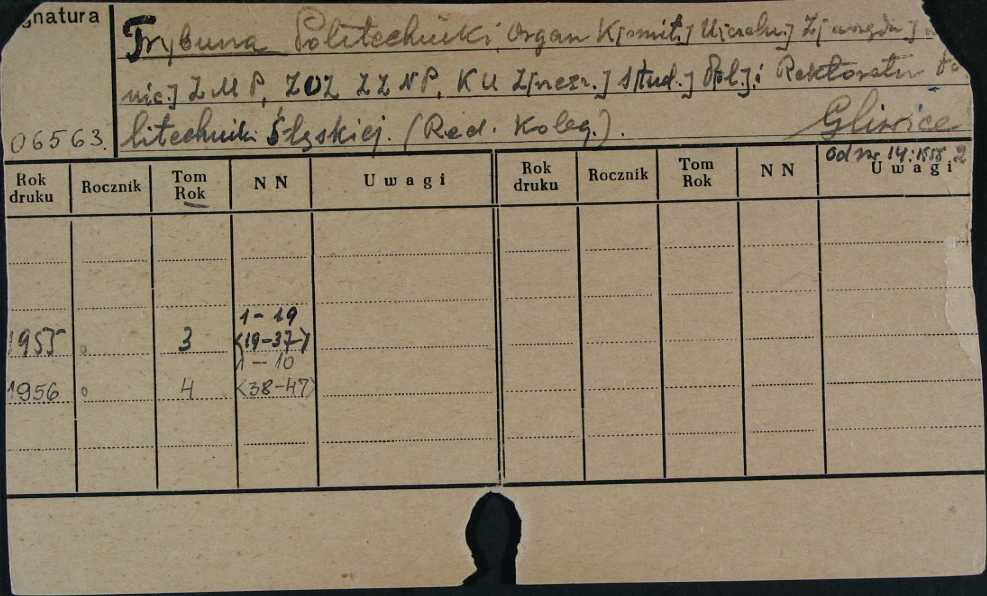 gnatura
Trybuna Politechniki. Organ K[omit.] Uczeln.]
nic.] ZMP, ZOZ ZZNP, KU Z[rzesz.] Stud.] Pol.] i Rektoratu Po
06563. litechniki Śląskiej. (Red. Koleg.). Gliwice
Od nr 14: 1955
Rok druku Rocznik Tom Rok NN Uwagi Rok druku Rocznik Tom Rok NN Uwagi
1-19
1955 3 (19-37)
1-10
1956 4 <38-47>